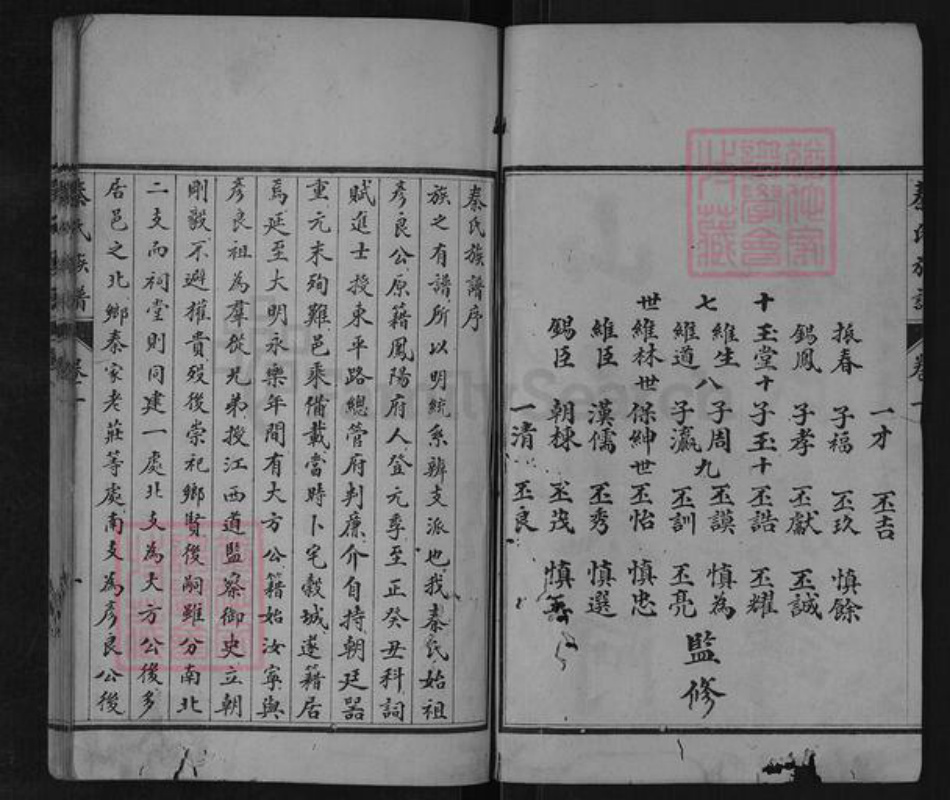 一才 丕吉
振春 子福 丕玖 慎餘
錫鳳 子孝 丕獻 丕誠
十 玉堂 十 子玉 十 丕誥 丕耀
七 維生 八 子周 九 丕謨 慎為
維道 子瀛 丕訓 丕亮
世 維林 世 保紳 世 丕怡 慎忠
維臣 漢儒 丕秀 慎選
錫臣 朝棟 丕茂
一清 丕良
監修
秦氏族譜 卷一
秦氏族譜序
族之有譜所以明統系辨支派也我秦氏始祖
彥良公原籍鳳陽府人登元季至正癸丑科詞
賦進士授東平路總管府判廉介自持朝廷器
重元末殉難邑乘備載當時卜宅穀城遂籍居
焉延至大明永樂年間有大方公籍始汝寧與
彥良祖為羣從兄弟授江西道監察御史立朝
剛毅不避權貴歿後崇祀鄉賢後嗣雖分南北
二支而祠堂則同建一處北支為大方公後多
居邑之北鄉秦家老莊等處南支為彥良公後
秦氏族譜 卷一